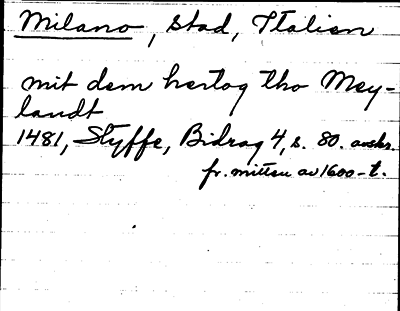 Milano, stad, Italien
mit dem hertog tho Mey-
landt
1481, Styffe, Bidrag 4, s. 80. avskr.
fr. mitten av 1600-t.